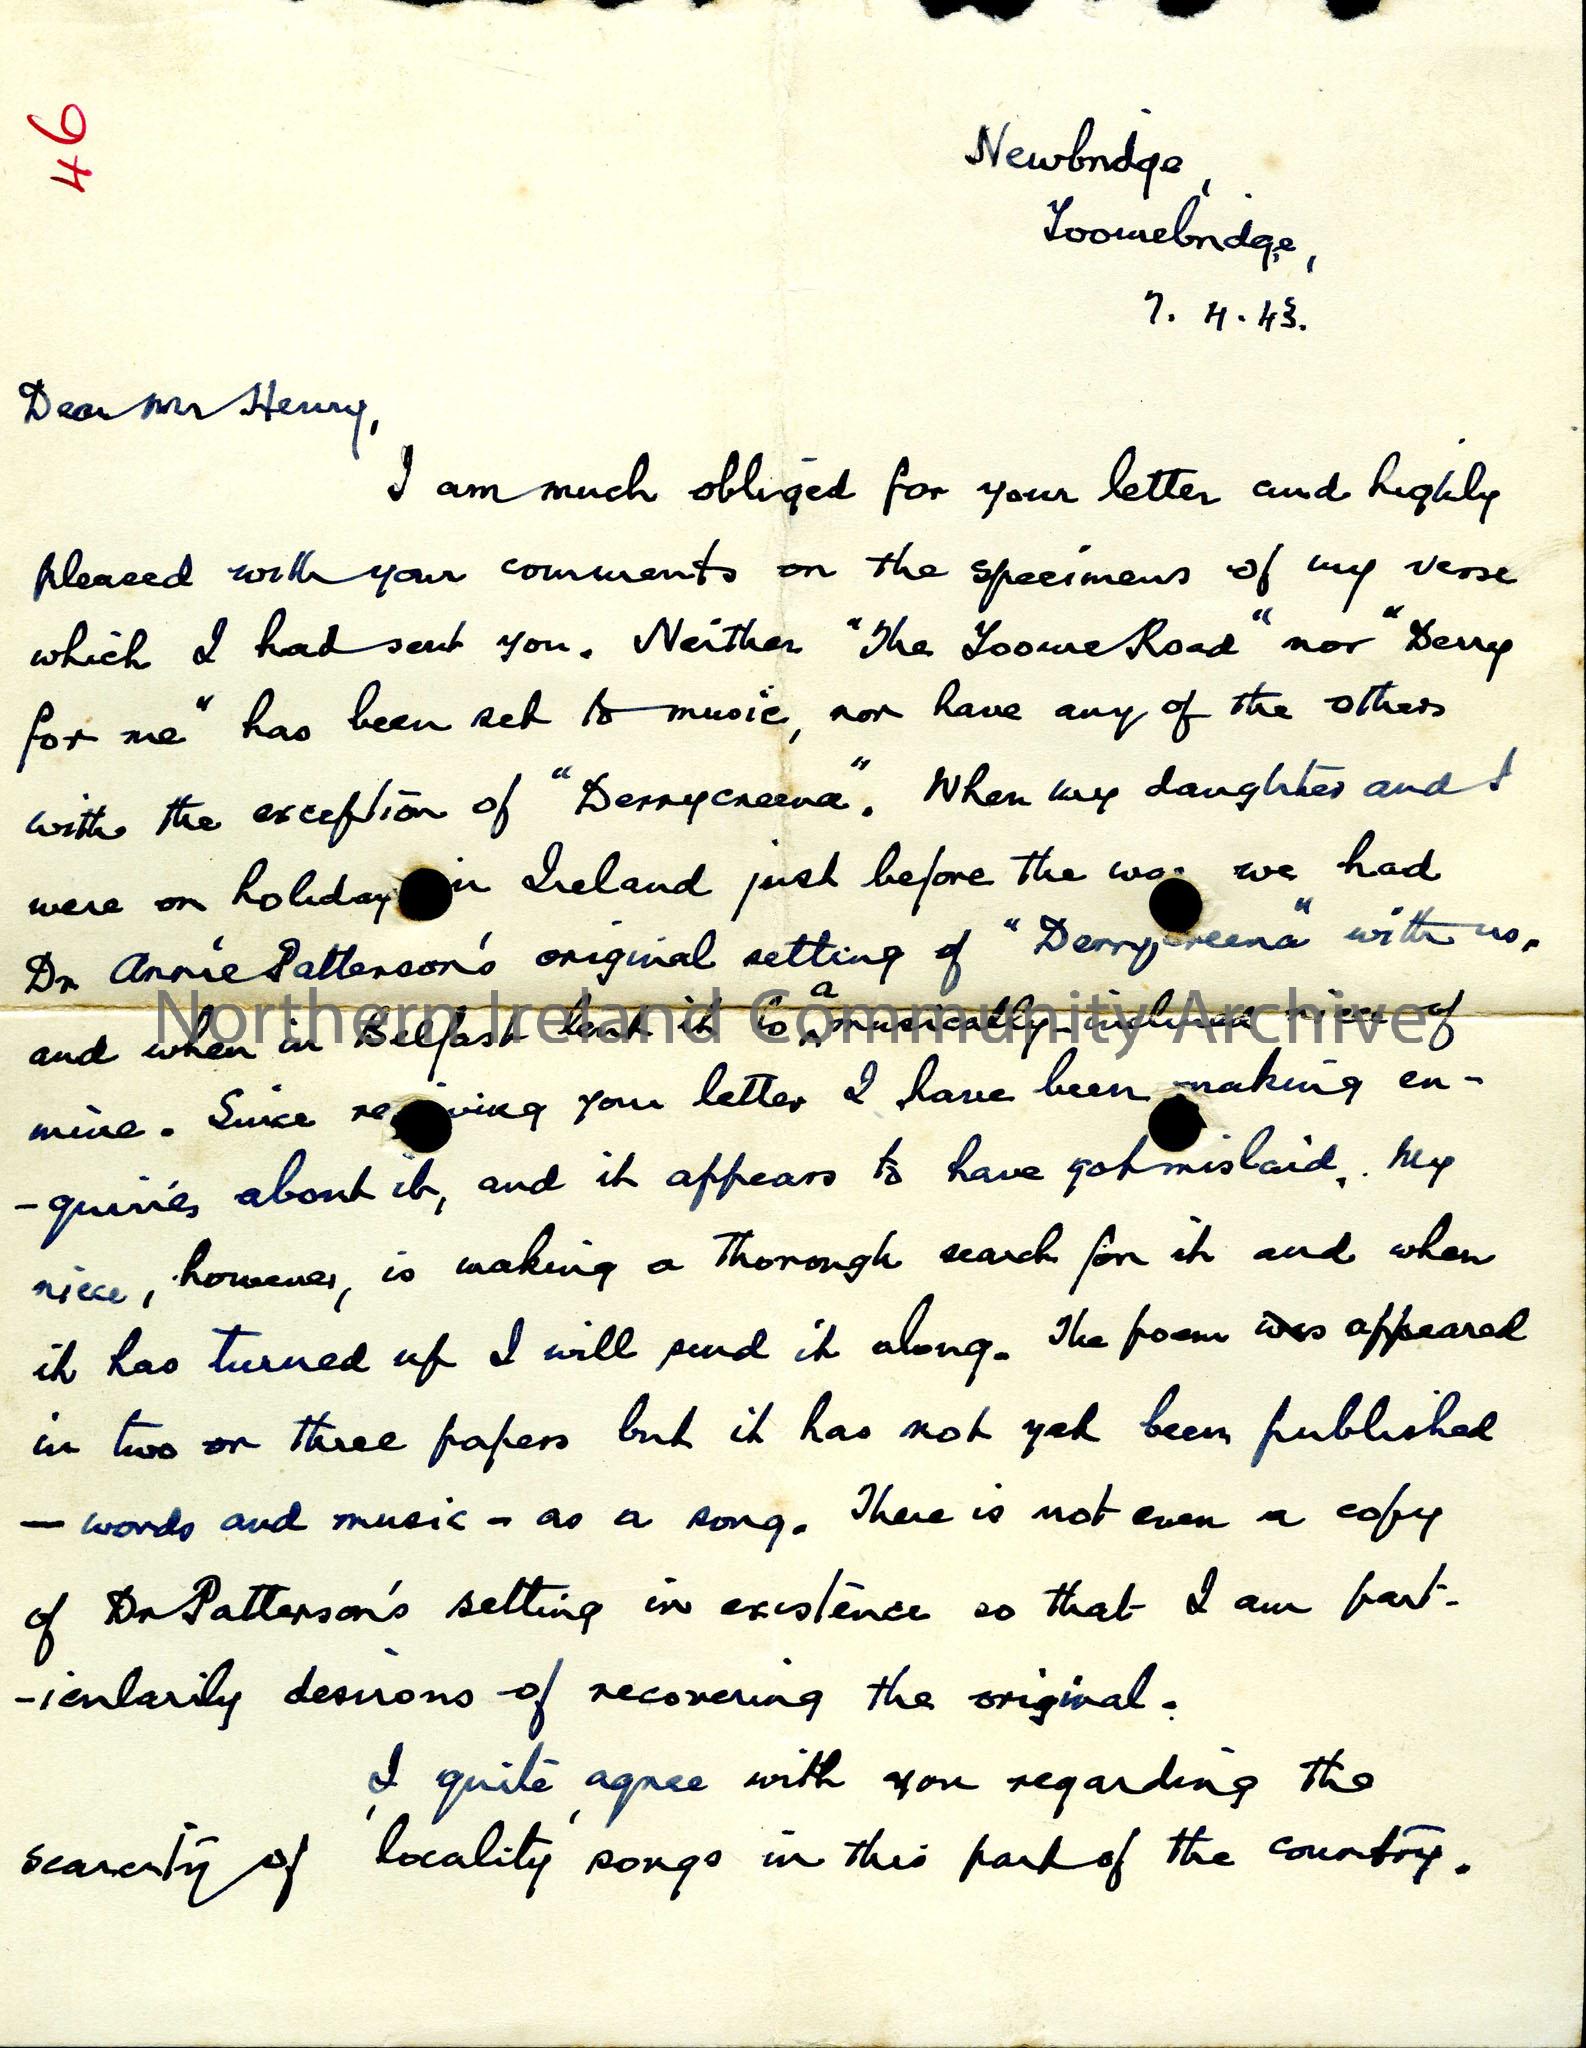 46
Newbridge,
Toomebridge,
7. 4. 43.
Dear Mr Henry,
I am much obliged for your letter and highly
pleased with your comments on the specimens of my verse
which I had sent you. Neither "The Toome Road" nor "Derry
for me" has been set to music, nor have any of the others
with the exception of "Derrycreena". When my daughter and I
were on holiday in Ireland just before the wa we had
Dr Annie Patterson's original setting of "Derrycreena" with us,
and when in Belfast lent it to a musically-inclined niece of
Northern Ireland Community Archive
mine. Since re iving your letter I have been making en-
-quiries about it, and it appears to have got mislaid. My
niece, however, is making a thorough search for it and when
it has turned up I will send it along. The poem was appeared
in two or three papers but it has not yet been published
- words and music - as a song. There is not even a copy
of Dr Patterson's setting in existence so that I am part-
-icularily desirous of recovering the original.
I quite agree with you regarding the
scarcity of 'locality' songs in this part of the country.